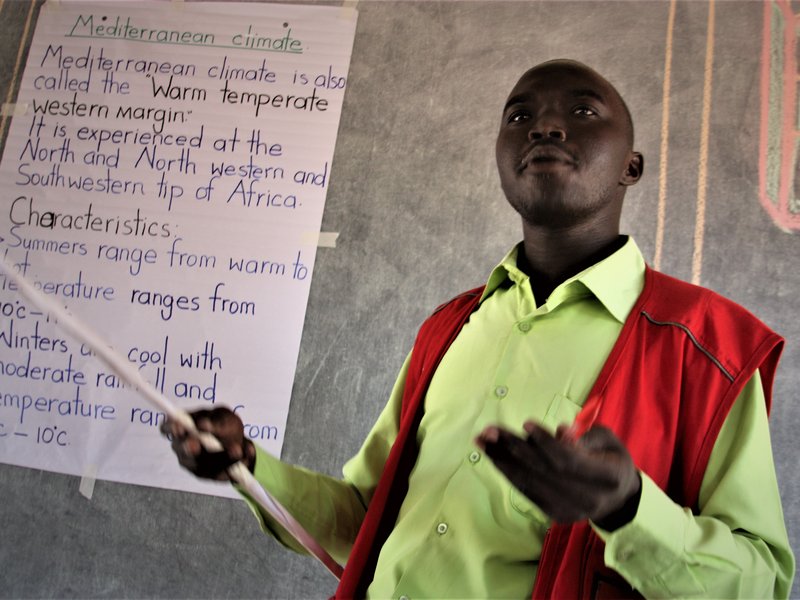 Mediterranean climate.
Mediterranean climate is also
called the "Warm temperate
western margin."
It is experienced at the
North and North western and
Southwestern tip of Africa.
Characteristics:
Summers range from warm to
ranges from
Winters are cool with
moderate rainfall and
temperature from
- 10°C